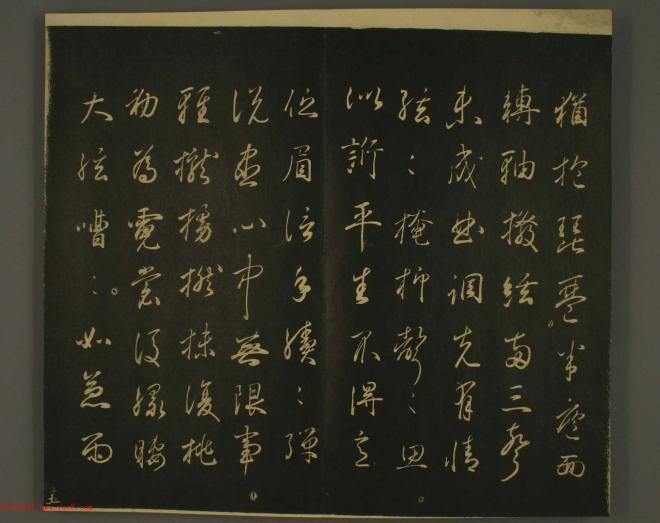 猶抱琵琶半遮面
轉軸撥絃兩三聲
未成曲調先有情
絃〻掩抑聲〻思
似訴平生不得意
低眉信手續〻彈
說盡心中無限事
輕攏慢撚抹復挑
初為霓裳後綠腰
大絃嘈〻如急雨
五